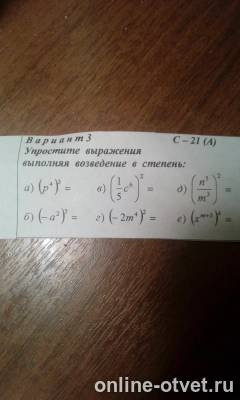 Вариант 3 С – 21 (А)
Упростите выражения
выполняя возведение в степень:
а) (p⁴)³ = в) (1/5 c⁶)² = д) (n⁵/m³)² =
б) (−a²)⁷ = г) (−2m⁴)² = е)
online-otvet.ru